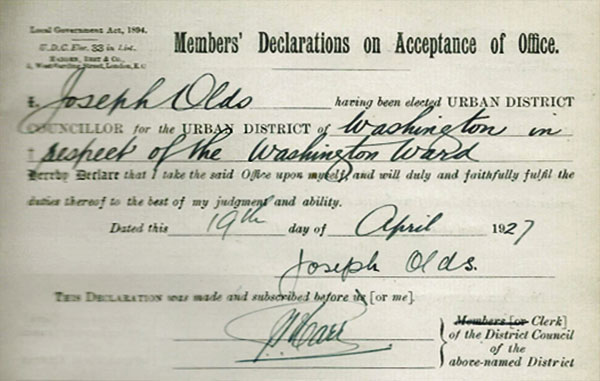 Local Government Act, 1894.
U.D.C. Elec. 33 in List.
Members' Declarations on Acceptance of Office.
I, Joseph Olds having been elected URBAN DISTRICT
COUNCILLOR for the URBAN DISTRICT of Washington in
respect of the Washington Ward
Hereby Declare that I take the said Office upon myself, and will duly and faithfully fulfil the
duties thereof to the best of my judgment and ability.
Dated this 19th day of April 1927
Joseph Olds.
THIS DECLARATION was made and subscribed before us [or me].
Members [or Clerk]
of the District Council
of the
above-named District